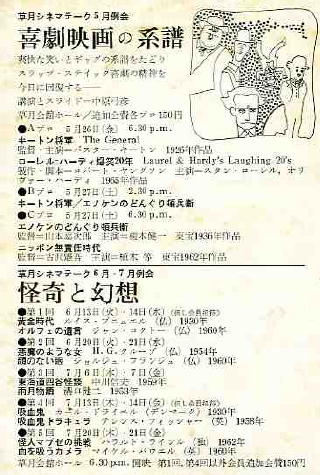 草月シネマテーク5月例会
喜劇映画の系譜
爽快な笑いとギャグの系譜をたどり
スラップ・スティック喜劇の精神を
今日に回復する——
講演とスライド=中原弓彦
草月会館ホール/追加会費各プロ150円
●Aプロ 5月26日(金) 6.30 p.m.
キートン将軍 The General
監督・主演=バスター・キートン 1926年作品
ローレル・ハーディ爆笑20年 Laurel & Hardy's Laughing 20's
製作・脚本=ロバート・ヤングソン 主演=スタン・ローレル、オリ
ヴァー・ハーディ 1965年作品
●Bプロ 5月27日(土) 2.30 p.m.
キートン将軍/エノケンのどんぐり頓兵衛
●Cプロ 5月27日(土) 6.30 p.m.
エノケンのどんぐり頓兵衛
監督=山本嘉次郎 主演=榎本健一 東宝1936年作品
ニッポン無責任時代
監督=古沢憲吾 主演=植木等 東宝1962年作品
草月シネマテーク6月・7月例会
怪奇と幻想
●第1回 6月13日(火)・14日(水)
黄金時代 ルイス・ブニュエル(仏) 1930年
オルフェの遺言 ジャン・コクトー(仏) 1960年
●第2回 6月20日(火)・21日(水)
悪魔のような女 H.G.クルーゾ(仏) 1954年
顔のない眼 ジョルジュ・フランジュ(仏) 1960年
●第3回 7月6日(木)・7日(金)
東海道四谷怪談 中川信夫 1959年
雨月物語 溝口健二 1953年
●第4回 7月13日(木)・14日(金)
吸血鬼 カール・ドライエル(デンマーク) 1930年
吸血鬼ドラキュラ テレンス・フィッシャー(英) 1958年
●第5回 7月20日(木)・21日(金)
怪人マブゼの挑戦 ハラルト・ラインル(独) 1962年
血を吸うカメラ マイケル・パウエル(英) 1960年
草月会館ホール 6.30 p.m. 開映 第1回、第4回以外会員追加会費150円